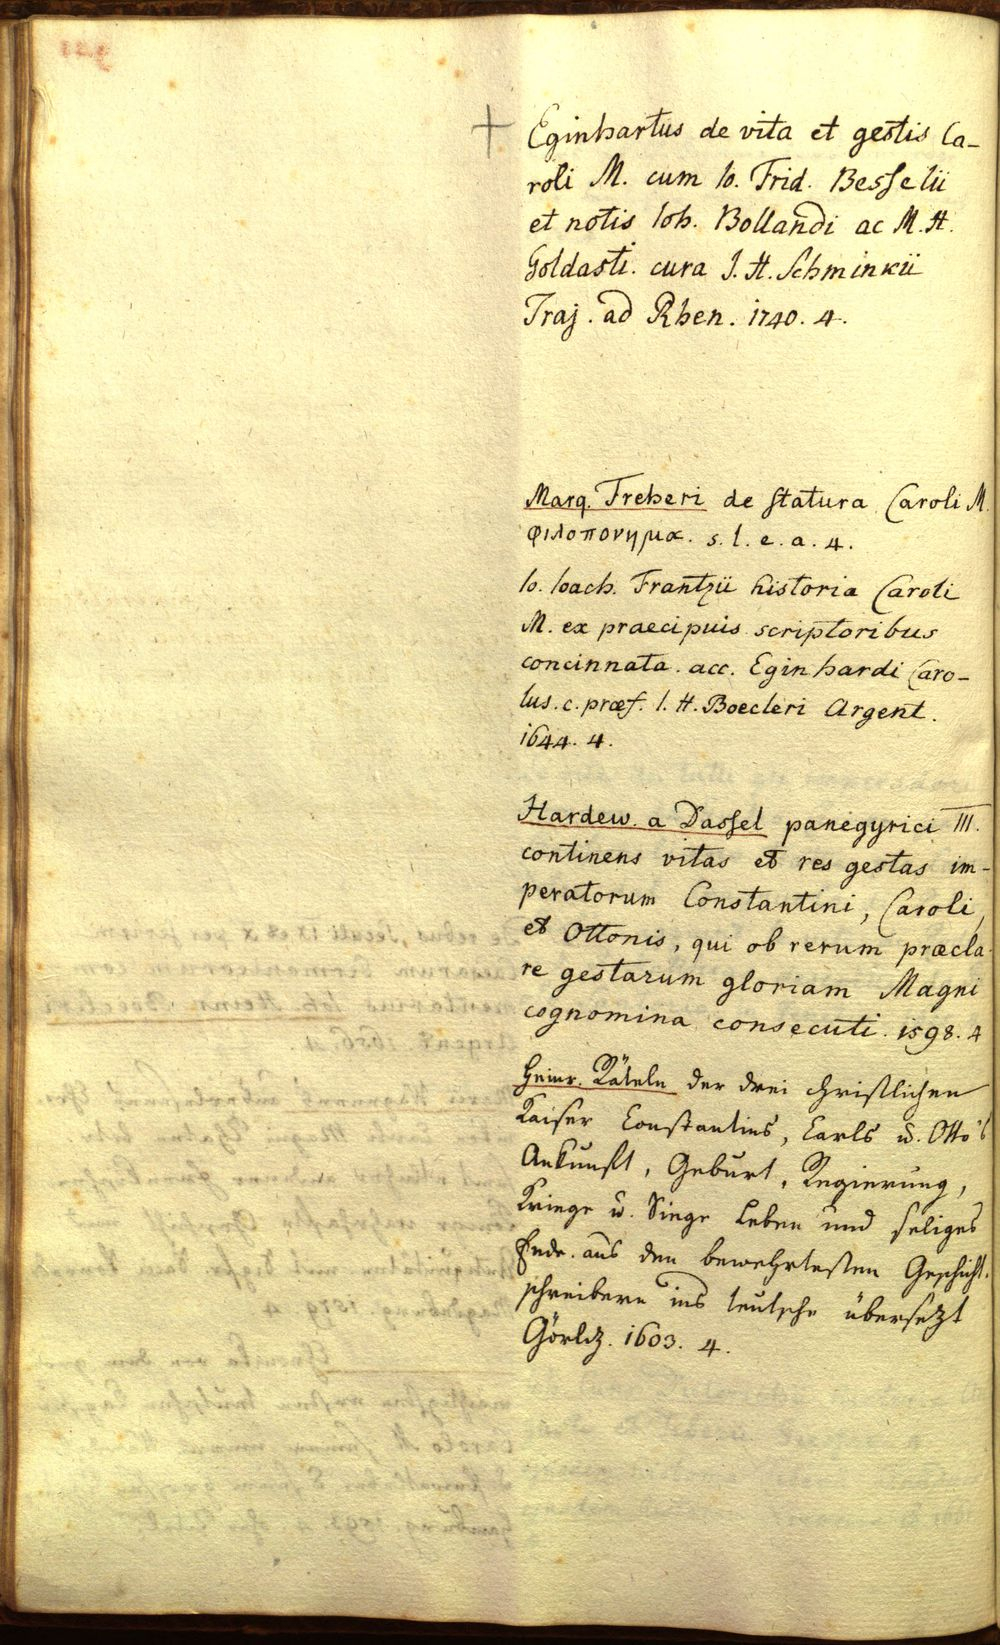 + Eginhartus de vita et gestis Ca-
roli M. cum Io. Frid. Besselii
et notis Ioh. Bollandi ac M. H.
Goldasti. cura J. H. Schminkii
Traj. ad Rhen. 1740. 4.
Marq. Freheri de statura Caroli M.
φιλοπονημα. s. l. e. a. 4.
Io. Ioach. Frantzii historia Caroli
M. ex praecipuis scriptoribus
concinnata. acc. Eginhardi Caro-
lus. c. præf. I. H. Boecleri Argent.
1644. 4.
Hardew. a Dassel panegyrici III.
continens vitas et res gestas im-
peratorum Constantini, Caroli,
et Ottonis, qui ob rerum præcla-
re gestarum gloriam Magni
cognomina consecuti. 1598. 4
Heinr. Räteln der drei christlichen
Kaiser Constantins, Carls u. Otto's
Ankunft, Geburt, Regierung,
Kriege u. Siege Leben und seliges
Ende. aus den bewehrtesten Geschicht-
schreibern ins teutsche übersezt
Görliz. 1603. 4.